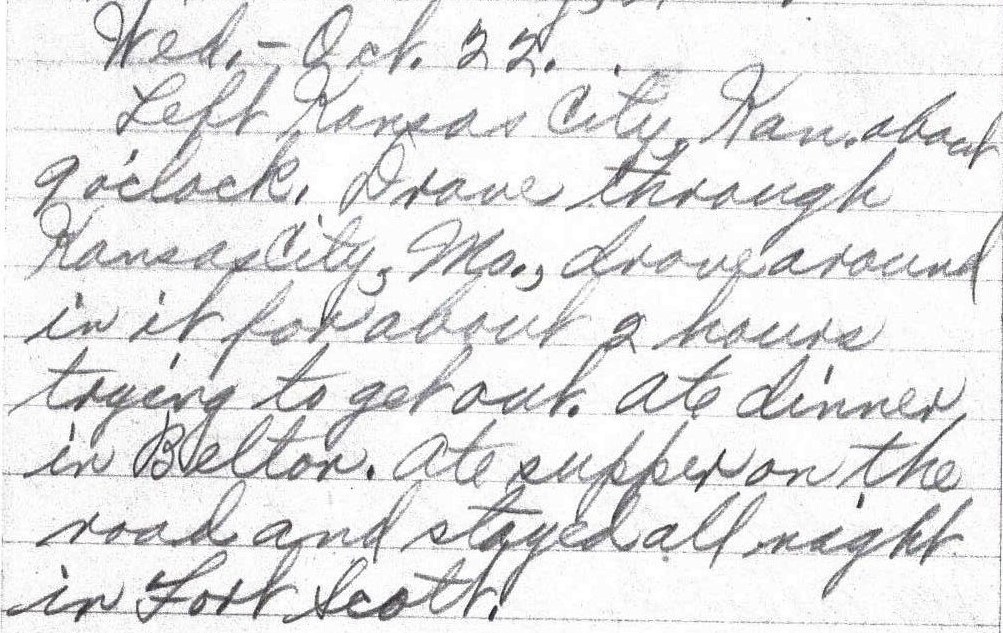 Wed. - Oct. 22.
Left Kansas City, Kan. about
9 o'clock. Drove through
Kansas City, Mo., drove around
in it for about 2 hours
trying to get out. Ate dinner
in Belton. Ate supper on the
road and stayed all night
in Fort Scott.